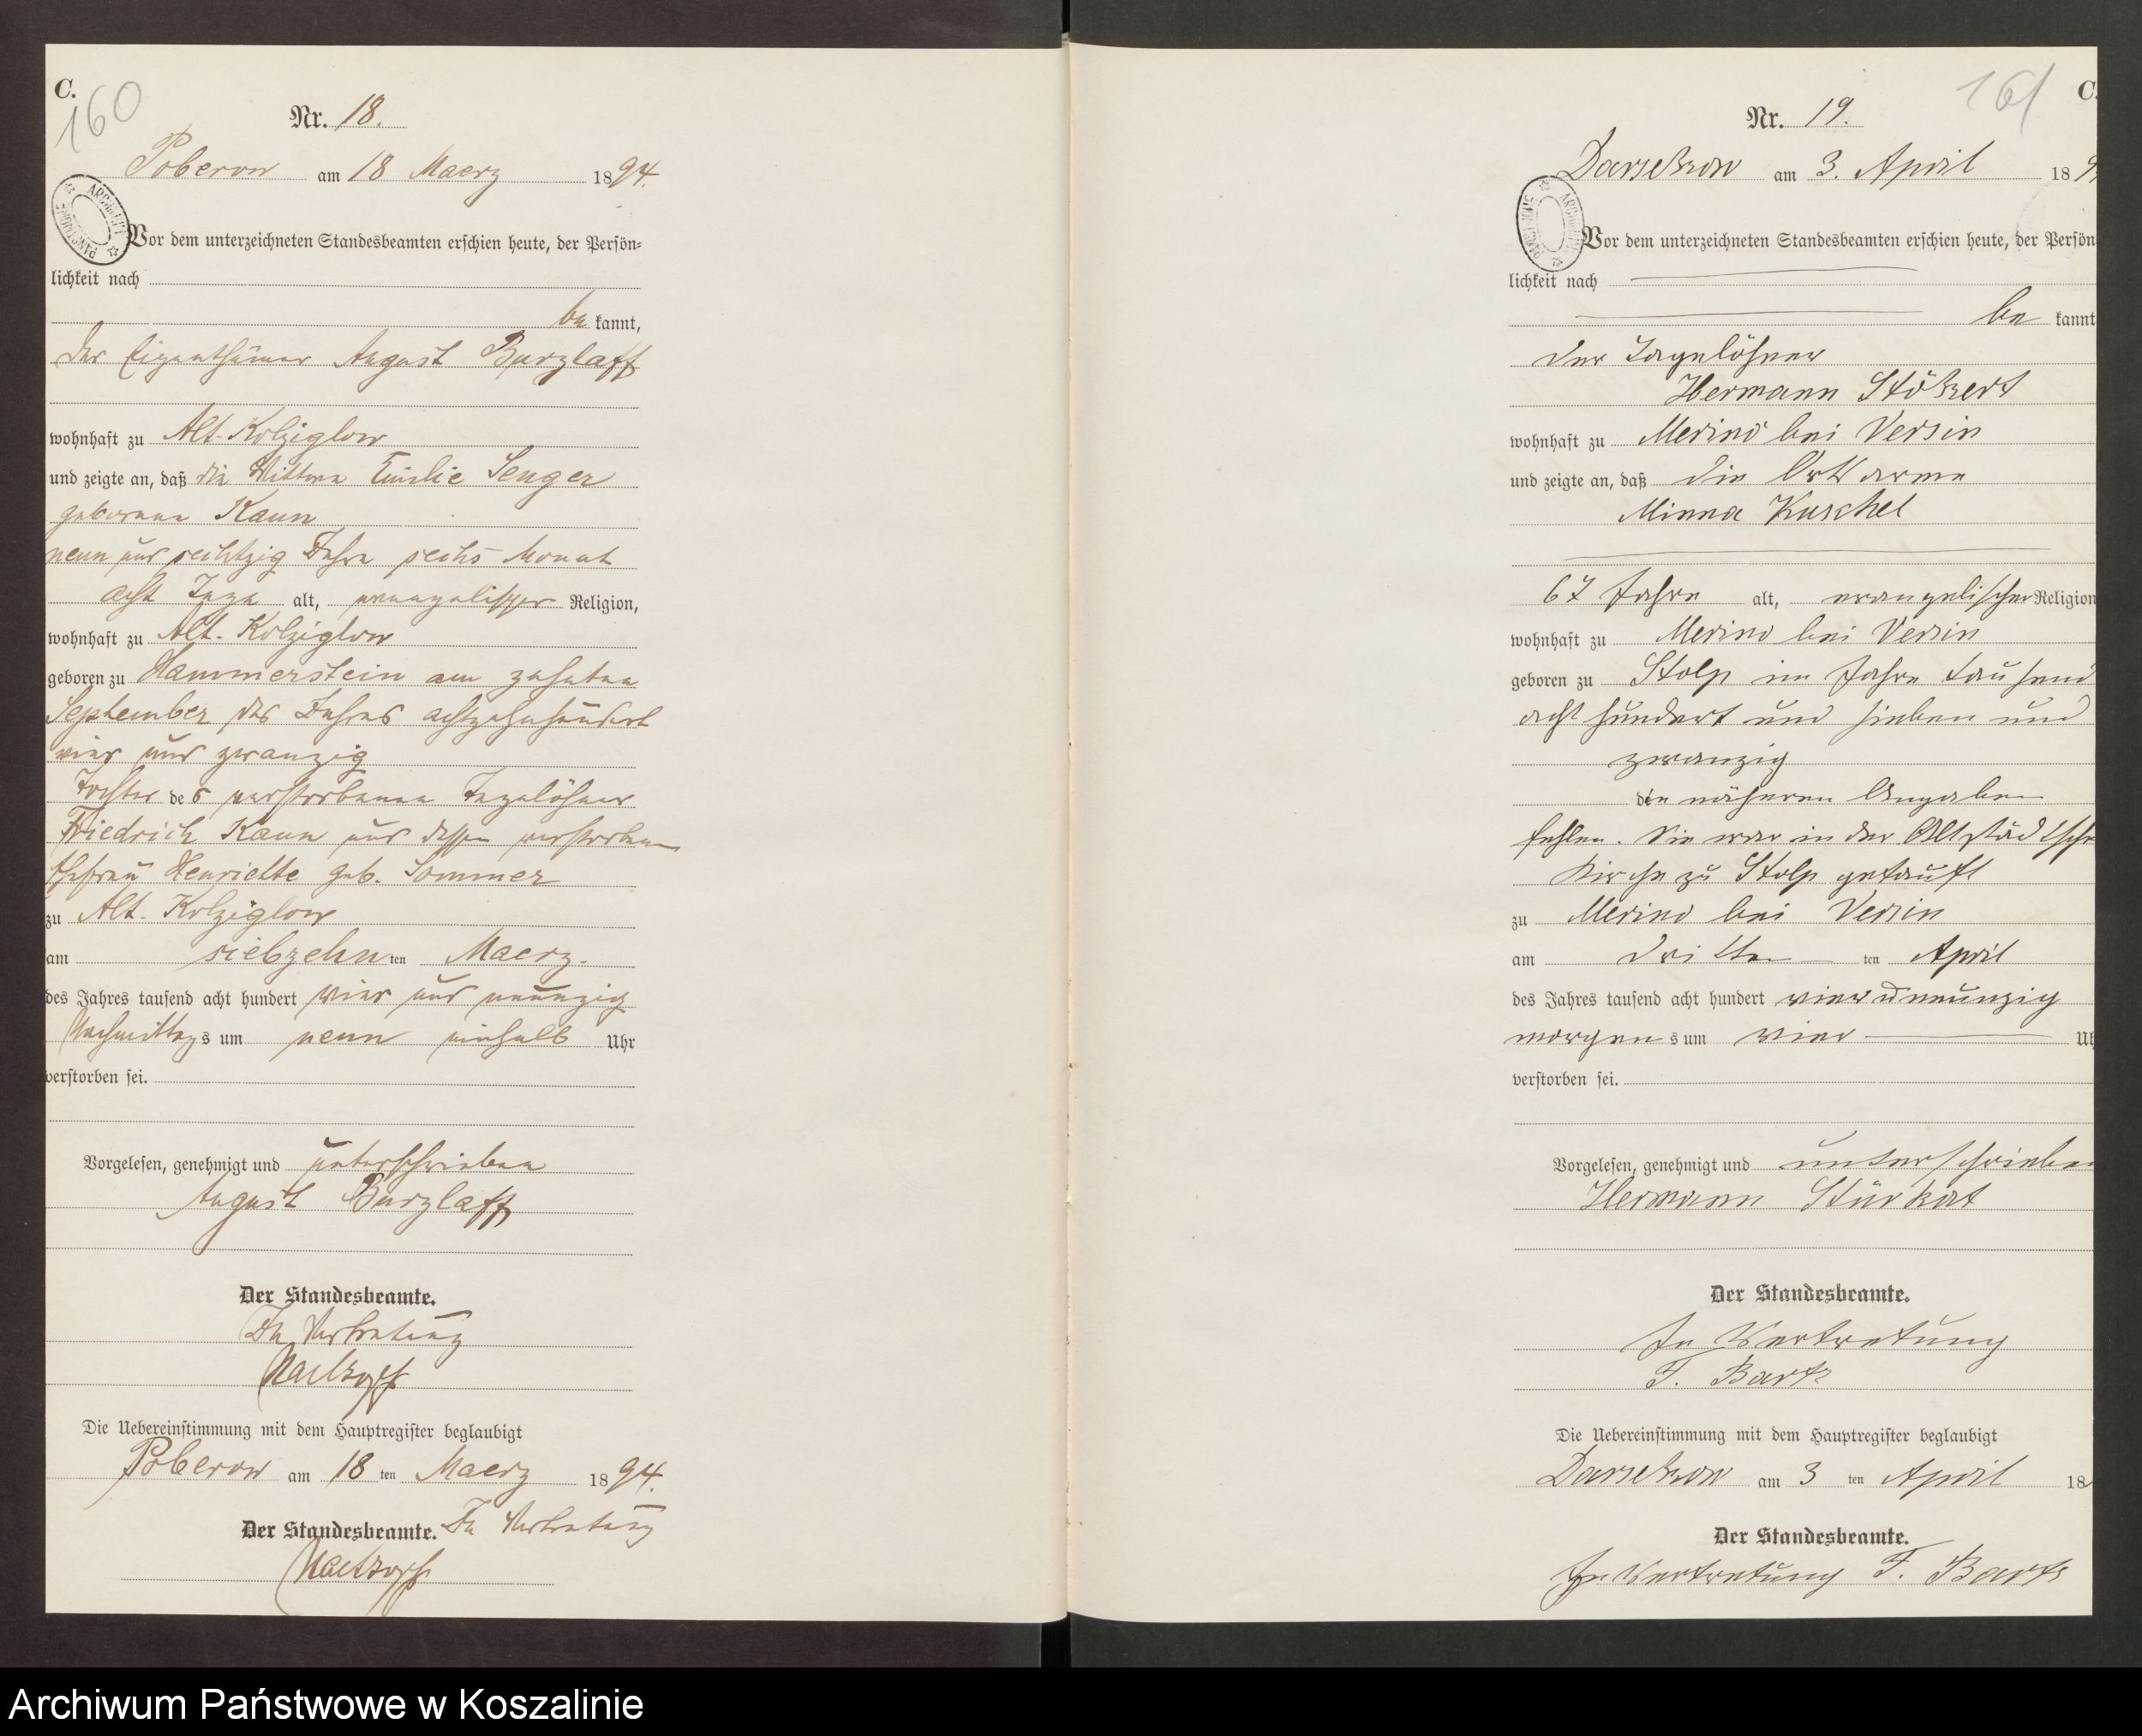 C.
160
Nr. 18.
Poberow am 18 Maerz 1894.
ARCHIWUM PAŃSTWOWE
Vor dem unterzeichneten Standesbeamten erschien heute, der Persön-
lichkeit nach
be kannt,
der Eigenthümer August Burzlaff
wohnhaft zu Alt-Kolziglow
und zeigte an, daß die Wittwe Emilie Senger
geborene Kaun
neun und sechtzig Jahre sechs Monat
acht Tage alt, evangelischer Religion,
wohnhaft zu Alt-Kolziglow
geboren zu Hammerstein am zehnten
September des Jahres achtzehnhundert
vier und zwanzig
Tochter des verstorbenen Tagelöhner
Friedrich Kaun und dessen verstorbenen
Ehefrau Henriette geb. Sommer
zu Alt-Kolziglow
am siebzehn ten Maerz.
des Jahres tausend acht hundert vier und neunzig
Nachmittags um neun einhalb Uhr
verstorben sei.
Vorgelesen, genehmigt und unterschrieben
August Burzlaff
Der Standesbeamte.
In Vertretung
Die Uebereinstimmung mit dem Hauptregister beglaubigt
Poberow am 18 ten Maerz 1894.
Der Standesbeamte. In Vertretung
161
C.
Nr. 19.
Darsekow am 3. April 189
ARCHIWUM PAŃSTWOWE
Vor dem unterzeichneten Standesbeamten erschien heute, der Persön
lichkeit nach
be kannt
der Tagelöhner
Hermann Stökert
wohnhaft zu Merino bei Versin
und zeigte an, daß die Ortsarme
Minna Kuschel
67 Jahre alt, evangelischer Religion
wohnhaft zu Merino bei Versin
geboren zu Stolp im Jahre tausend
acht hundert und sieben und
zwanzig
die näheren Angaben
fehlen. Sie war in der Altstädtsche
Kirche zu Stolp getauft
zu Merino bei Versin
am dritten ten April
des Jahres tausend acht hundert vier u neunzig
morgens um vier Uh
verstorben sei.
Vorgelesen, genehmigt und unterschrieben
Hermann Stürkat
Der Standesbeamte.
In Vertretung
F. Bartz
Die Uebereinstimmung mit dem Hauptregister beglaubigt
Darsekow am 3 ten April 18
Der Standesbeamte.
In Vertretung F. Bartz
Archiwum Państwowe w Koszalinie